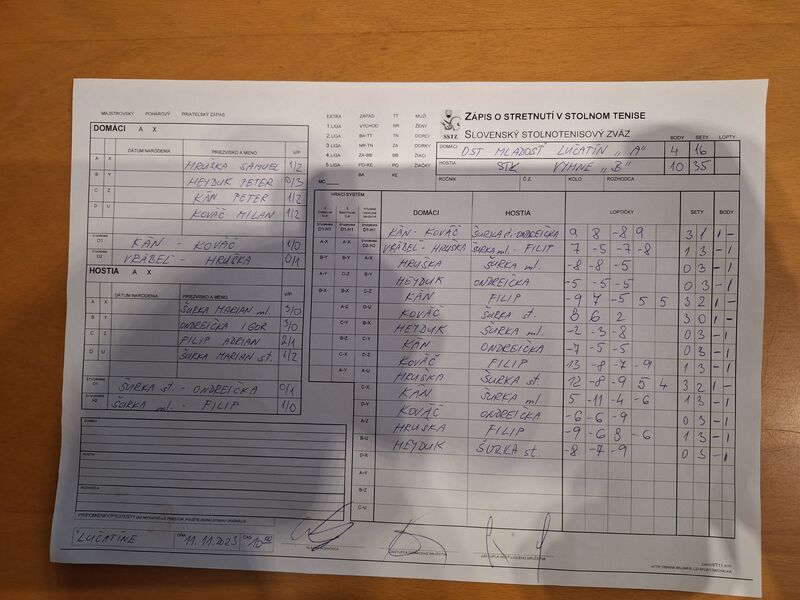 MAJSTROVSKÝ POHÁROVÝ PRIATEĽSKÝ ZÁPAS
DOMÁCI A X
DÁTUM NARODENIA PRIEZVISKO A MENO V/P
A X HRUŠKA SAMUEL 1/2
B Y HEYDUK PETER 0/3
C Z KÁN PETER 1/2
D U KOVÁČ MILAN 1/2
ŠTVORHRA D1 KÁN - KOVÁČ 1/0
ŠTVORHRA D2 VRÁBEL - HRUŠKA 0/1
HOSTIA A X
DÁTUM NARODENIA PRIEZVISKO A MENO V/P
A X ŠURKA MARIAN ml. 3/0
B Y ONDREIČKA IGOR 3/0
C Z FILIP ADRIAN 2/1
D U ŠURKA MARIAN st. 1/2
ŠTVORHRA ŠURKA st. - ONDREIČKA 0/1
ŠTVORHRA H2 ŠURKA ml. - FILIP 1/0
DOMÁCI
HOSTIA
ROZHODCA
V LUČATÍNE DŇA 11.11.2023 ČAS
EXTRA ZÁPAD TT MUŽI
1.LIGA VÝCHOD NR ŽENY
2.LIGA BA-TT TN DORCI
3.LIGA NR-TN ZA DORKY
4.LIGA ZA-BB BB ŽIACI
5.LIGA PO-KE PO ŽIAČKY
BA KE
MO
SSTZ
ZÁPIS O STRETNUTÍ V STOLNOM TENISE
SLOVENSKÝ STOLNOTENISOVÝ ZVÄZ
BODY SETY LOPTY
DOMÁCI OŠT MLADOSŤ LUČATÍN "A" 4 16
HOSTIA STK VYHNE "B" 10 35
ROČNÍK Č.Z. KOLO ROZHODCA
HRACÍ SYSTÉM
DOMÁCI HOSTIA LOPTIČKY SETY BODY
D1-H1 D1-H1 D1-H1 KÁN - KOVÁČ ŠURKA st. ONDREIČKA 9 8 -8 9 3 1 1 -
A-X A-X D2-H2 VRÁBEL - HRUŠKA ŠURKA ml. - FILIP 7 -5 -7 -8 1 3 - 1
B-Y B-Y A-X HRUŠKA ŠURKA ml. -8 -8 -5 0 3 - 1
A-Y C-Z B-Y HEYDUK ONDREIČKA -5 -5 -5 0 3 - 1
B-X B-X C-Z KÁN FILIP -9 7 -5 5 5 3 2 1 -
A-Z D-U KOVÁČ ŠURKA st. 8 6 2 3 0 1 -
C-Y B-X HEYDUK ŠURKA ml. -2 -3 -8 0 3 - 1
B-Z C-Y KÁN ONDREIČKA -7 -5 -5 0 3 - 1
C-X D-Z KOVÁČ FILIP 13 -8 -7 -9 1 3 - 1
A-Y A-U HRUŠKA ŠURKA st. 12 -8 -9 5 4 3 2 1 -
C-X KÁN ŠURKA ml 5 -11 -4 -6 1 3 - 1
D-Y KOVÁČ ONDREIČKA -6 -6 -9 0 3 - 1
A-Z HRUŠKA FILIP -9 -6 8 -6 1 3 - 1
B-U HEYDUK ŠURKA st. -8 -7 -9 0 3 - 1
D-X
A-Y
B-Z
C-U